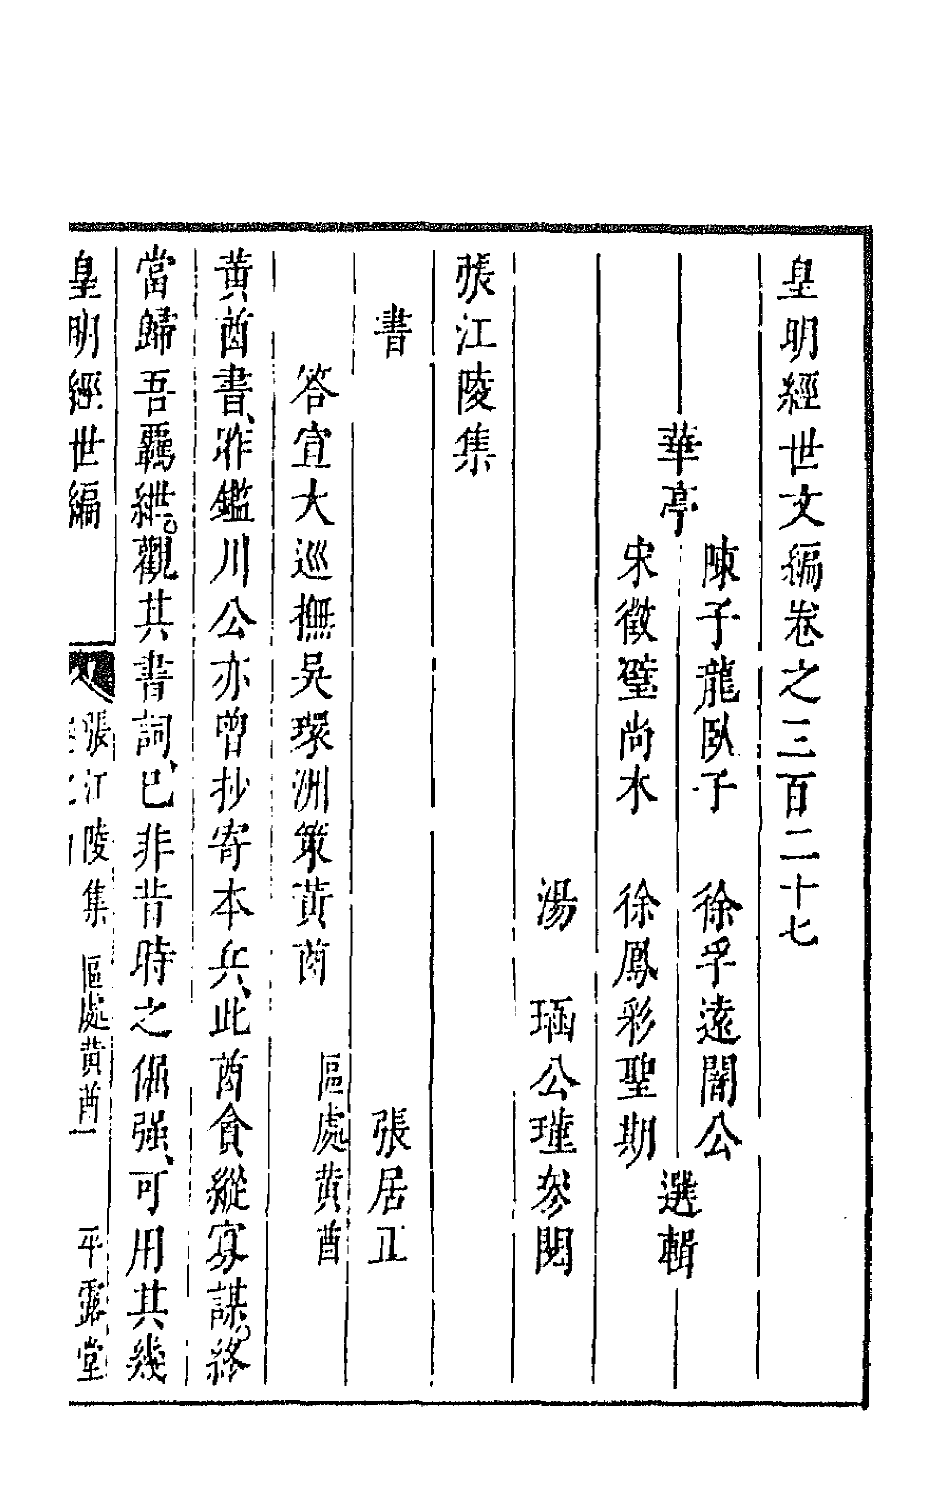 皇明經世文編卷之三百二十七
華亭
陳子龍臥子　徐孚遠闇公
宋徵璧尚木　徐鳳彩聖期
選輯
湯　　瑀公瑾參閱
張江陵集
書　　　　張居正
答宣大巡撫吳環洲策黃酋　區處黃酋
黃酋書、昨鑑川公亦曾抄寄本兵、此酋貪縱寡謀。終
當歸吾羈紲。觀其書詞、已非昔時之倔强、可用其幾
皇明經世編
張江陵集　區處黃酋　一
平露堂